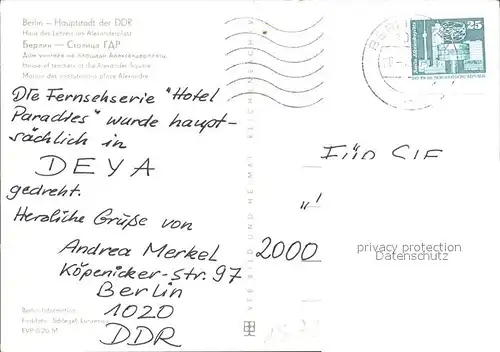 Berlin – Hauptstadt der DDR
Haus des Lehrers am Alexanderplatz
Берлин — Столица ГДР
Дом учителя на площади Александерплатц
House of teachers at the Alexander Square
Maison des instituteurs place Alexandre
25
Die Fernsehserie "Hotel
Paradies" wurde haupt-
sächlich in
DEYA
gedreht.
Herzliche Grüße von
Andrea Merkel
Köpenicker-Str. 97
Berlin
1020
DDR
FÜR SIE
"!
2000
privacy protection
Datenschutz
VERBILD UND HEIMAT REICHENBACH
Berlin-Information
EVP 0,20 M